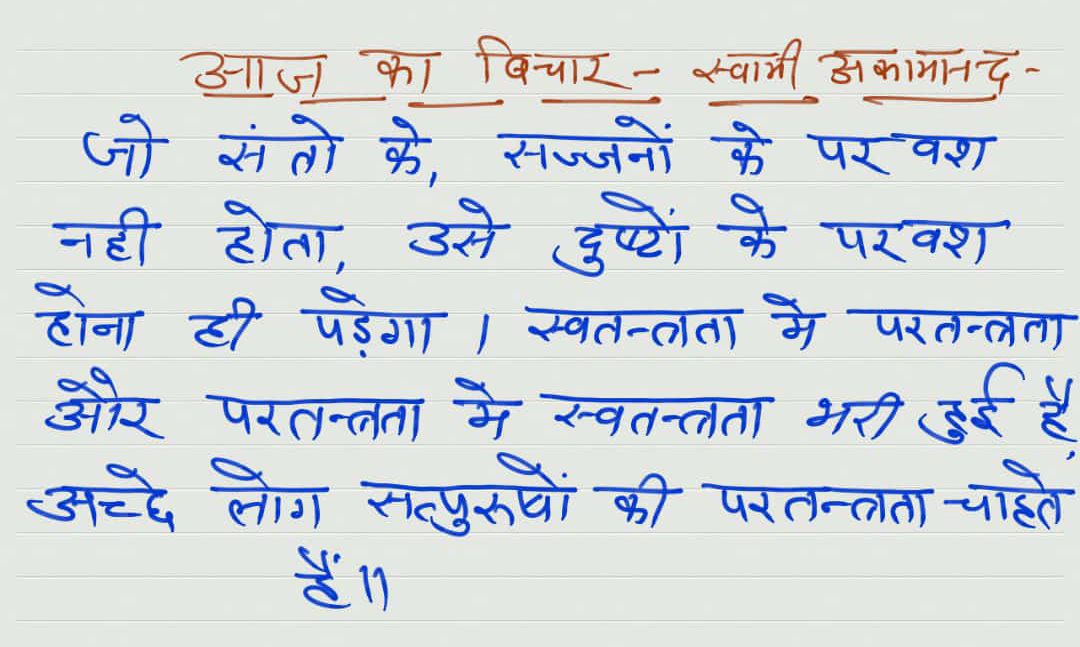 आज का विचार - स्वामी अकामानन्द -
जो संतो के, सज्जनों के परवश
नही होता, उसे दुष्टों के परवश
होना ही पड़ेगा । स्वतन्त्रता मे परतन्त्रता
और परतन्त्रता मे स्वतन्त्रता भरी हुई है,
अच्छे लोग सत्पुरुषों की परतन्त्रता चाहते
हैं ॥